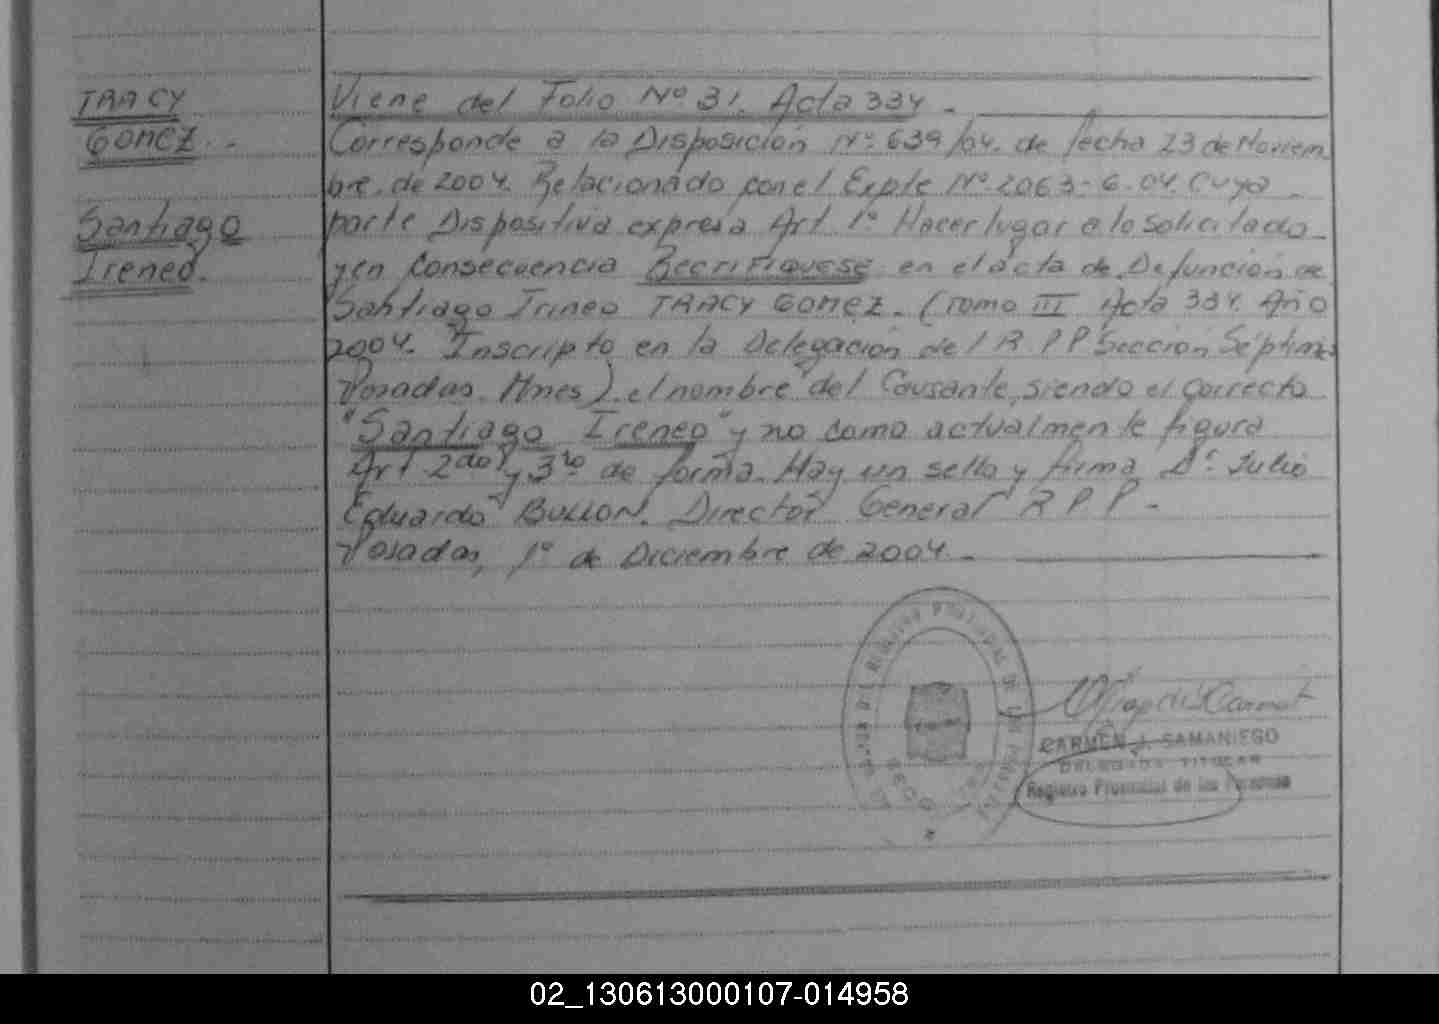 TRACY
GOMEZ.-
Santiago
Ireneo.
Viene del Folio Nº 31. Acta 334.-
Corresponde a la Disposición Nº 639/04. de fecha 23 de Noviem
bre. de 2004. Relacionado con el Expte Nº 2063-6-04. Cuya
parte Dispositiva expresa Art. 1º Hacer lugar a lo solicitado
y en consecuencia RECTIFIQUESE en el acta de Defunción de
Santiago Irineo TRACY GOMEZ. (Tomo III Acta 334. Año
2004. Inscripto en la Delegación del R.P.P Sección Séptima
Posadas. Mnes). el nombre del Causante, siendo el correcto
"Santiago Ireneo" y no como actualmente figura
Art 2do y 3ro de forma. Hay un sello y firma Dr. Julio
Eduardo BULLON. Director General R.P.P.-
Posadas, 1º de Diciembre de 2004.-
CARMEN J. SAMANIEGO
DELEGADA TITULAR
Registro Provincial de las Personas
02_130613000107-014958